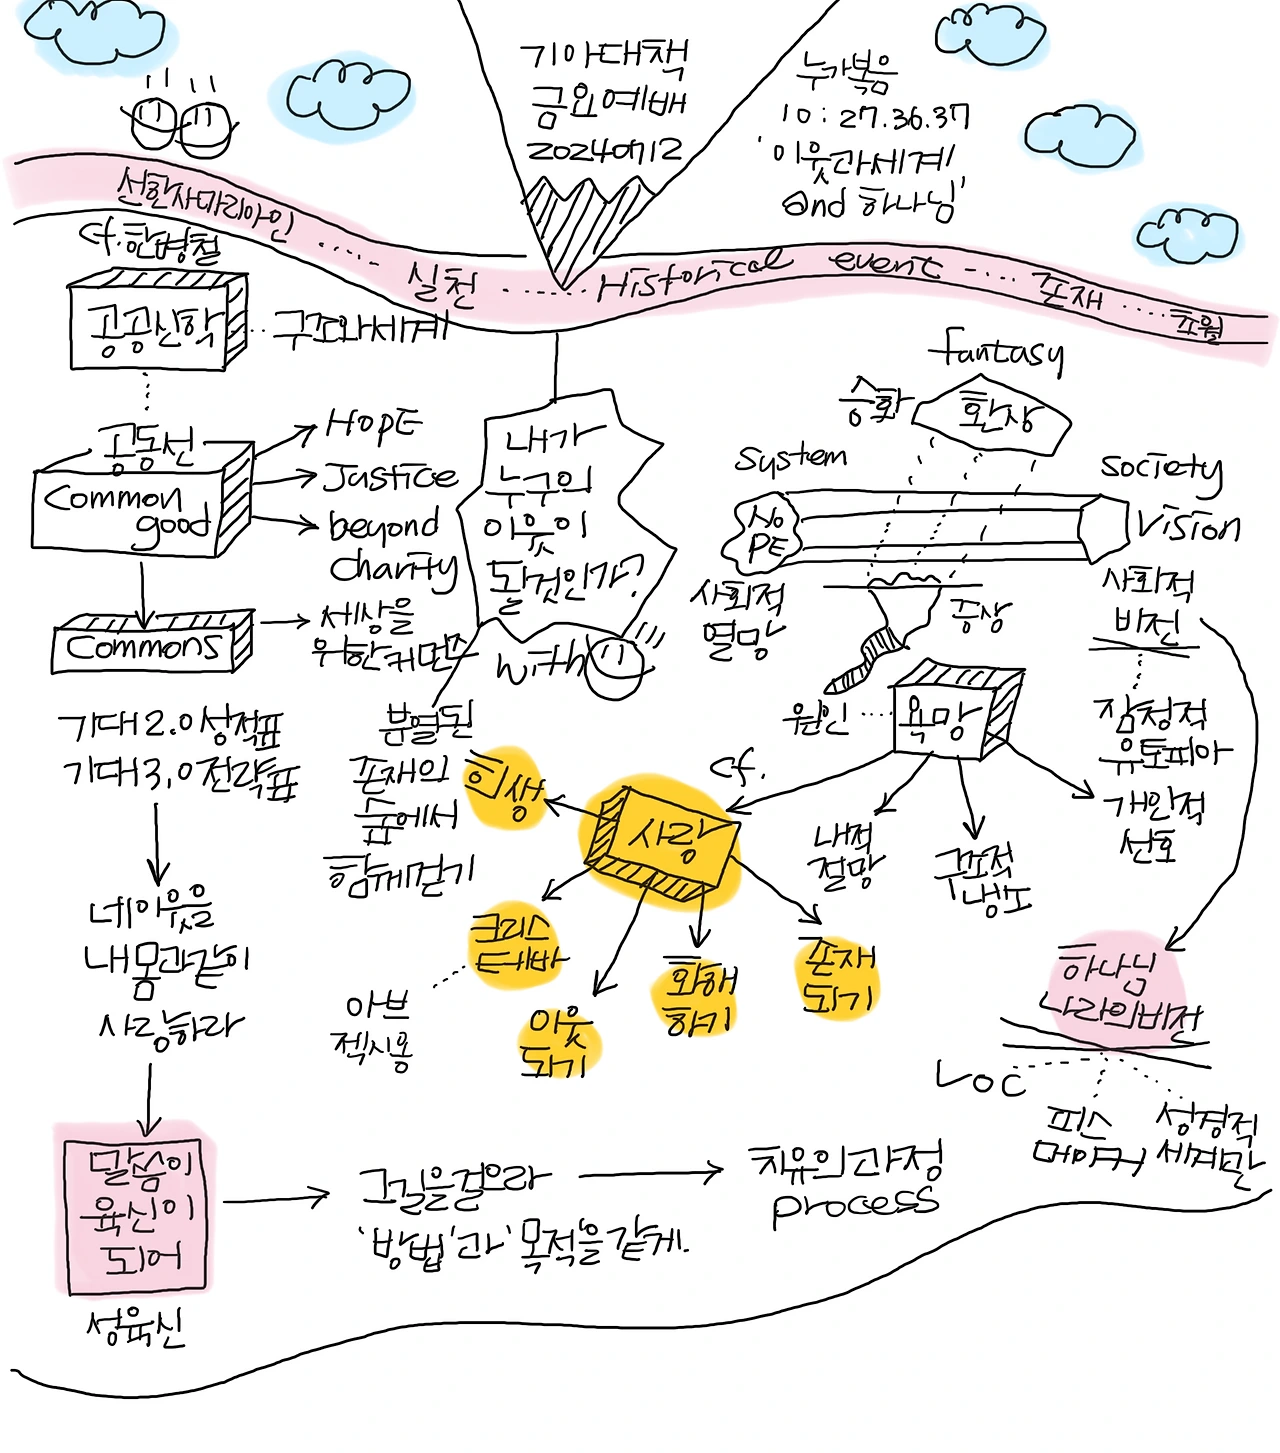 기아대책
금요예배
20240712
누가복음
10:27.36.37
'이웃과세계
and 하나님'
선한사마리아인 ...... 실천 ...... Historical event ..... 존재 ..... 초월
cf.한경철
공공신학 .. 구조와세계
공동선
Common
good
HOPE
Justice
beyond
charity
Commons
세상을
위한커먼즈
기대2.0성적표
기대3.0전략표
네이웃을
내몸과같이
사랑하라
말씀이
육신이
되어
성육신
그길을걸으라
'방법'과'목적'을같게.
치유의과정
process
내가
누구의
이웃이
될것인가?
with
분열된
존재의
숲에서
함께걷기
fantasy
승화
환상
System
NO
PE
사회적
열망
Society
Vision
사회적
비전
잠정적
유토피아
증상
원인 ... 욕망
cf.
내적
절망
구조적
냉소
개인적
선호
사랑
희생
크리스
테바
아브
젝시옹
이웃
되기
화해
하기
존재
되기
하나님
나라의비전
LOC
피스
메이커
성경적
세계관